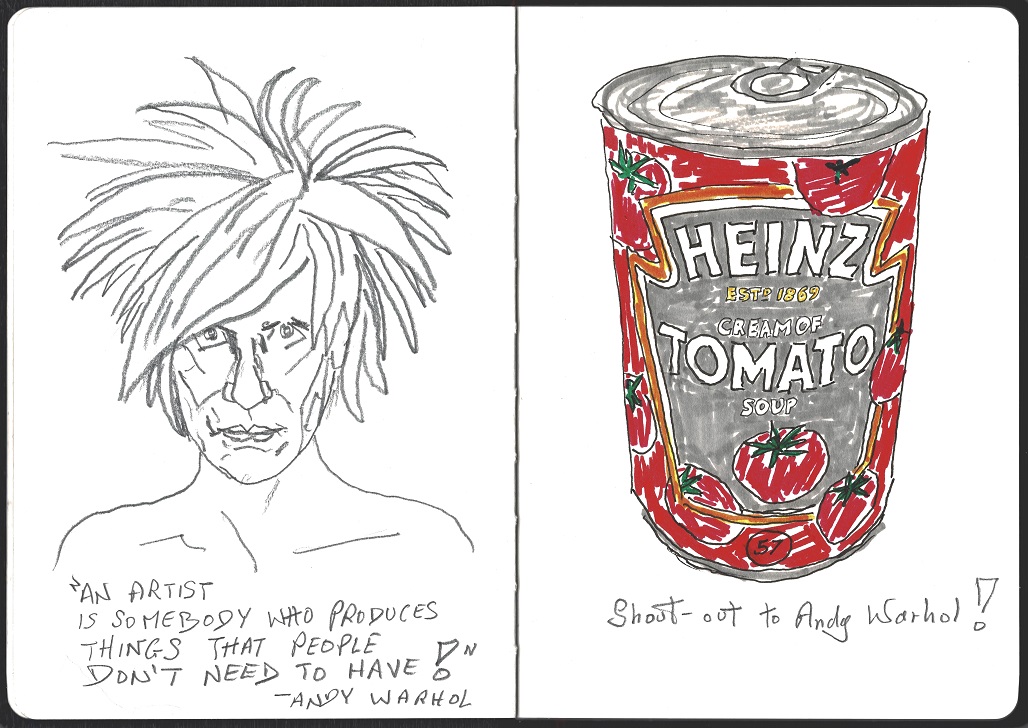 "AN ARTIST
IS SOMEBODY WHO PRODUCES
THINGS THAT PEOPLE
DON'T NEED TO HAVE!"
-ANDY WARHOL
HEINZ
ESTD 1869
CREAM OF
TOMATO
SOUP
57
Shout-out to Andy Warhol!